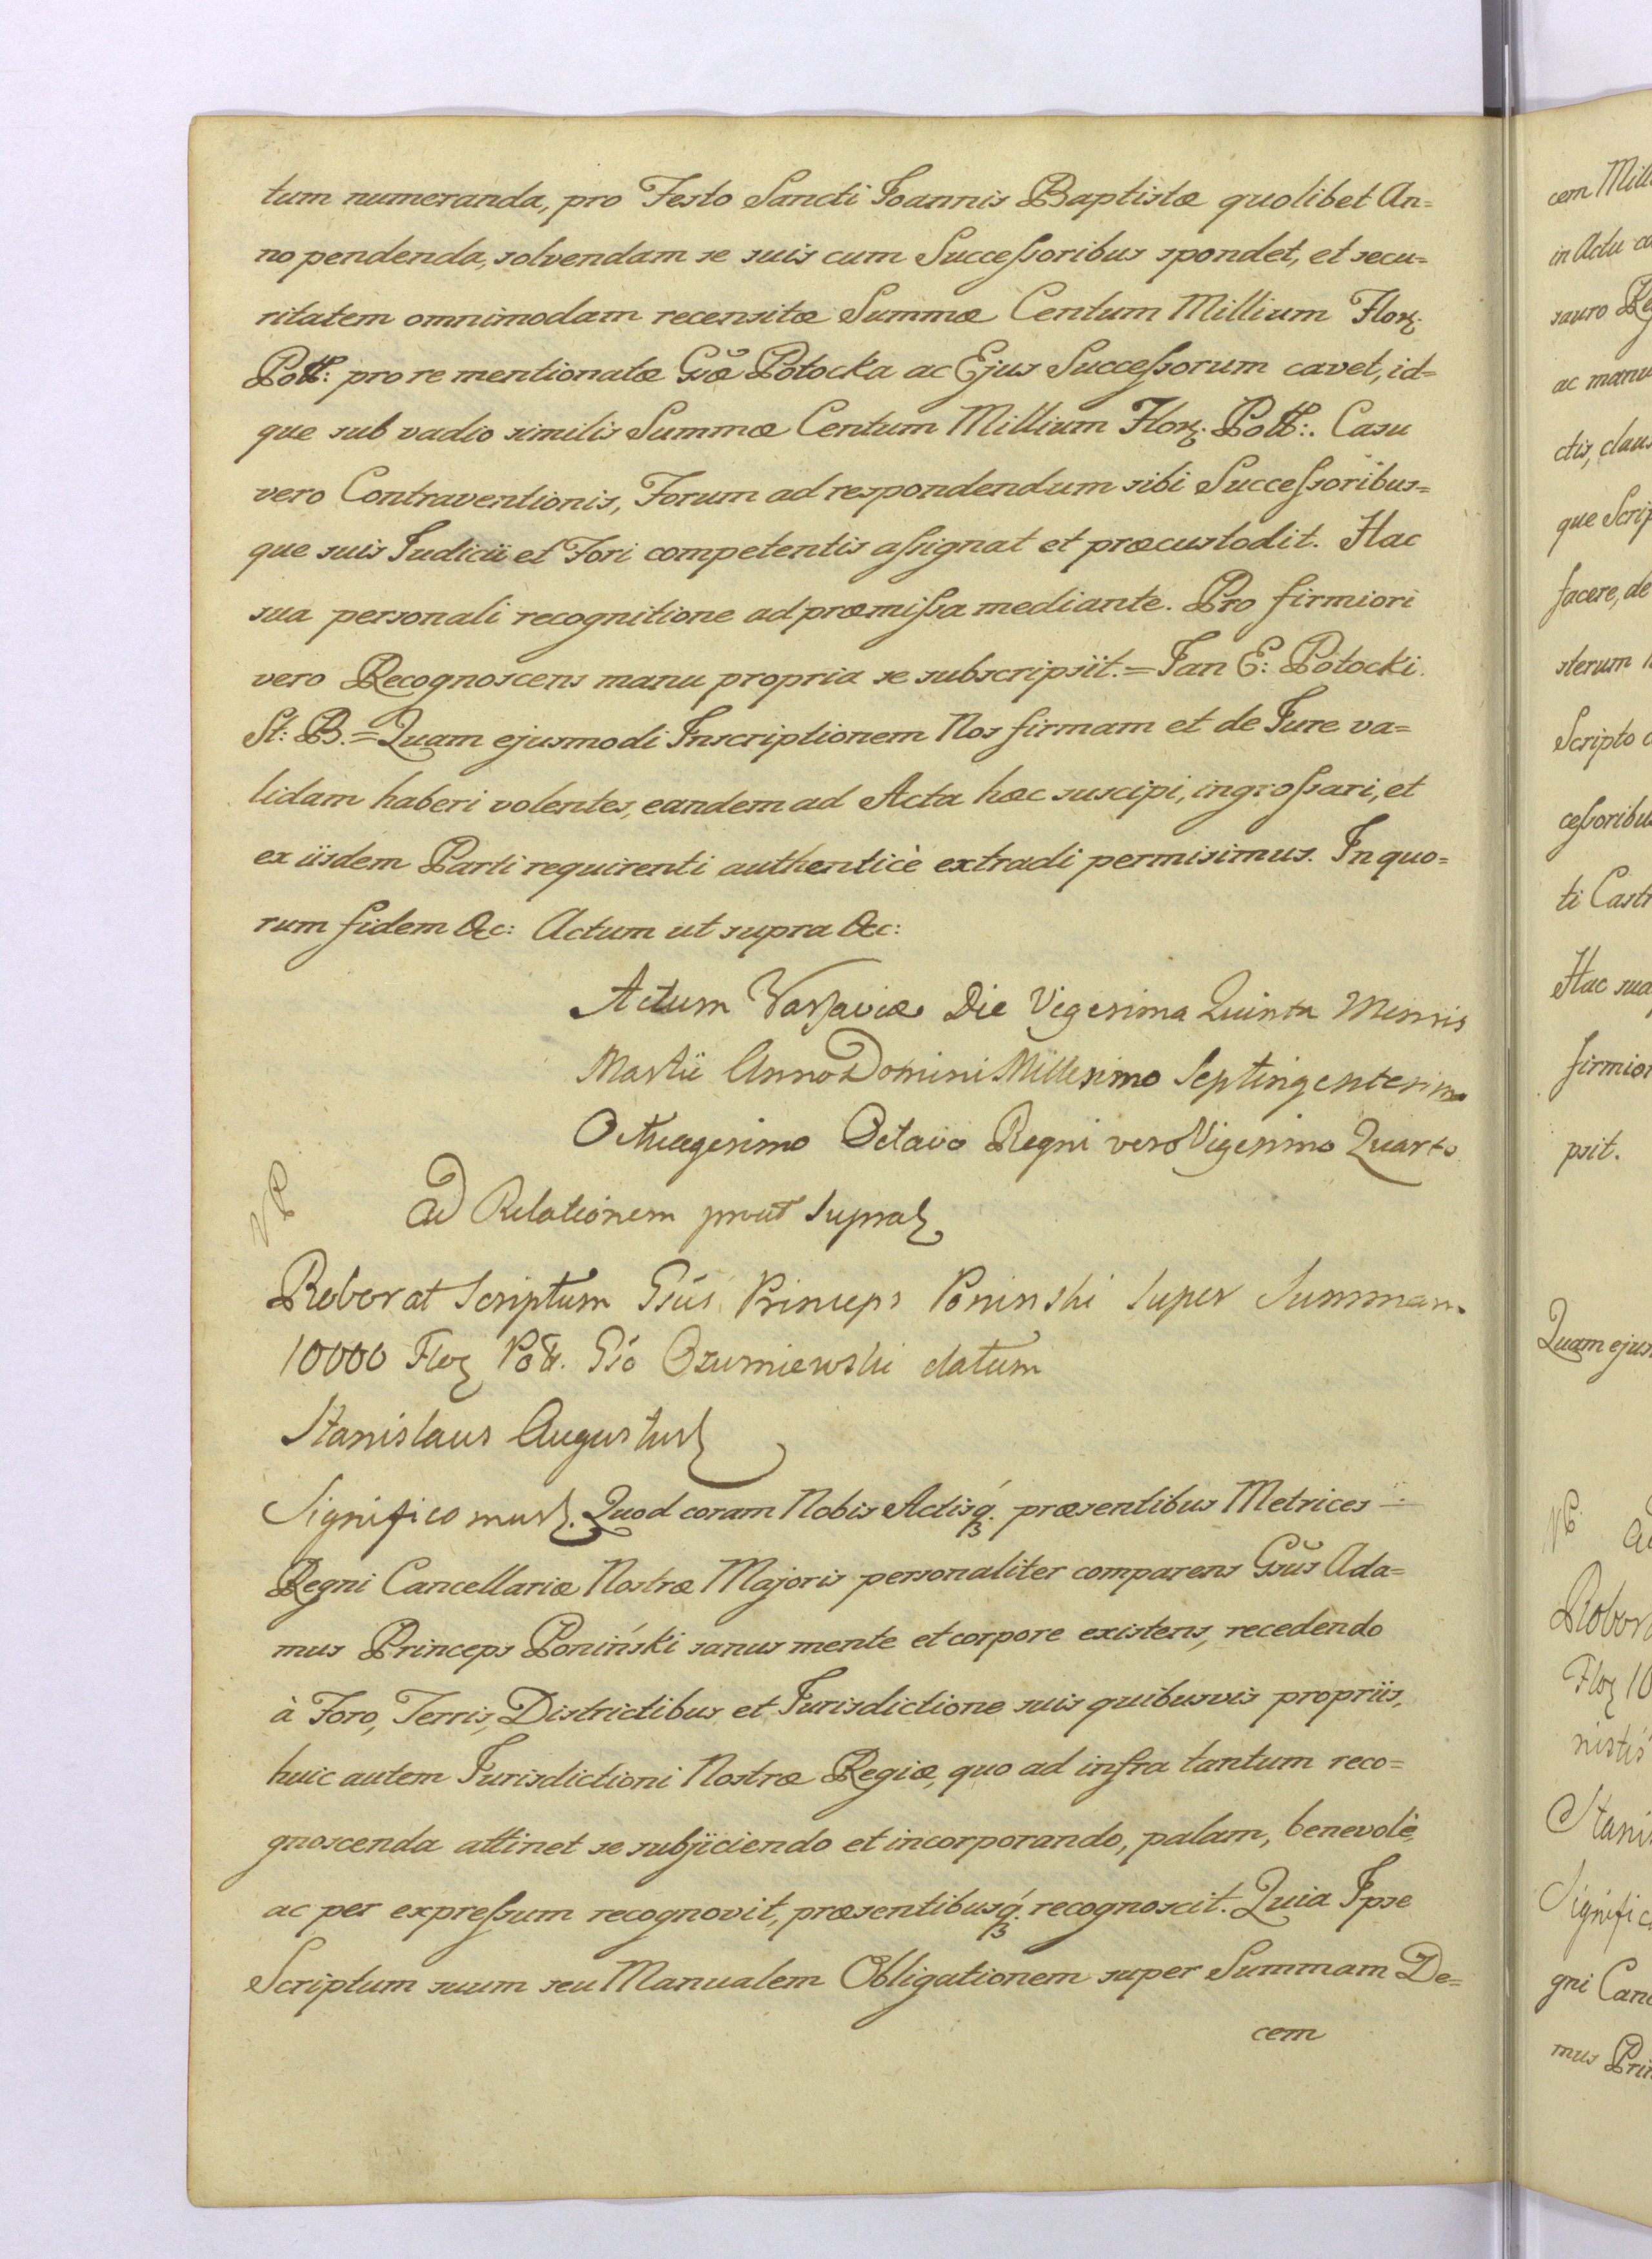 tum numeranda, pro Festo Sancti Joannis Baptistæ quolibet An=
no pendenda, solvendam se suis cum Successoribus spondet, et secu=
ritatem omnimodam recensitæ Summæ Centum Millium Flor:
Poll: pro re mentionatæ Gsæ Potocka ac Ejus Successorum cavet, id=
que sub vadio similis Summæ Centum Millium Flor: Poll:. Casu
vero Contraventionis, Forum ad respondendum sibi Successoribus=
que suis Judicii et Fori competentis assignat et præcustodit. Hac
sua personali recognitione ad præmissa mediante. Pro firmiori
vero Recognoscens manu propria se subscripsit.= Jan E: Potocki.
St: B.= Quam ejusmodi Inscriptionem Nos firmam et de Jure va=
lidam haberi volentes, eandem ad Acta hæc suscipi, ingrossari, et
ex iisdem Parti requirenti authenticè extradi permisimus. In quo=
rum fidem &c: Actum ut supra &c:
Actum Varsaviæ Die Vigesima Quinta Mensis
Martii Anno Domini Millesimo Septingentesimo
Octuagesimo Octavo Regni vero Vigesimo Quarto
Ad Relationem prout supra
Roborat Scriptum Gsus Princeps Poninski super Summam
10000 Flor Poll. Gso Ozumiewski datum
Stanislaus Augustus
Significamus. Quod coram Nobis Actisq. præsentibus Metrices
Regni Cancellariæ Nostræ Majoris personaliter comparens Gsus Ada=
mus Princeps Poniński sanus mente et corpore existens, recedendo
à Foro, Terris, Districtibus et Jurisdictione suis quibusvis propriis,
huic autem Jurisdictioni Nostræ Regiæ, quo ad infra tantum reco=
gnoscenda attinet se subjiciendo et incorporando, palam, benevolè
ac per expressum recognovit, præsentibusq. recognoscit. Quia Ipse
Scriptum suum seu Manualem Obligationem super Summam De=
cem